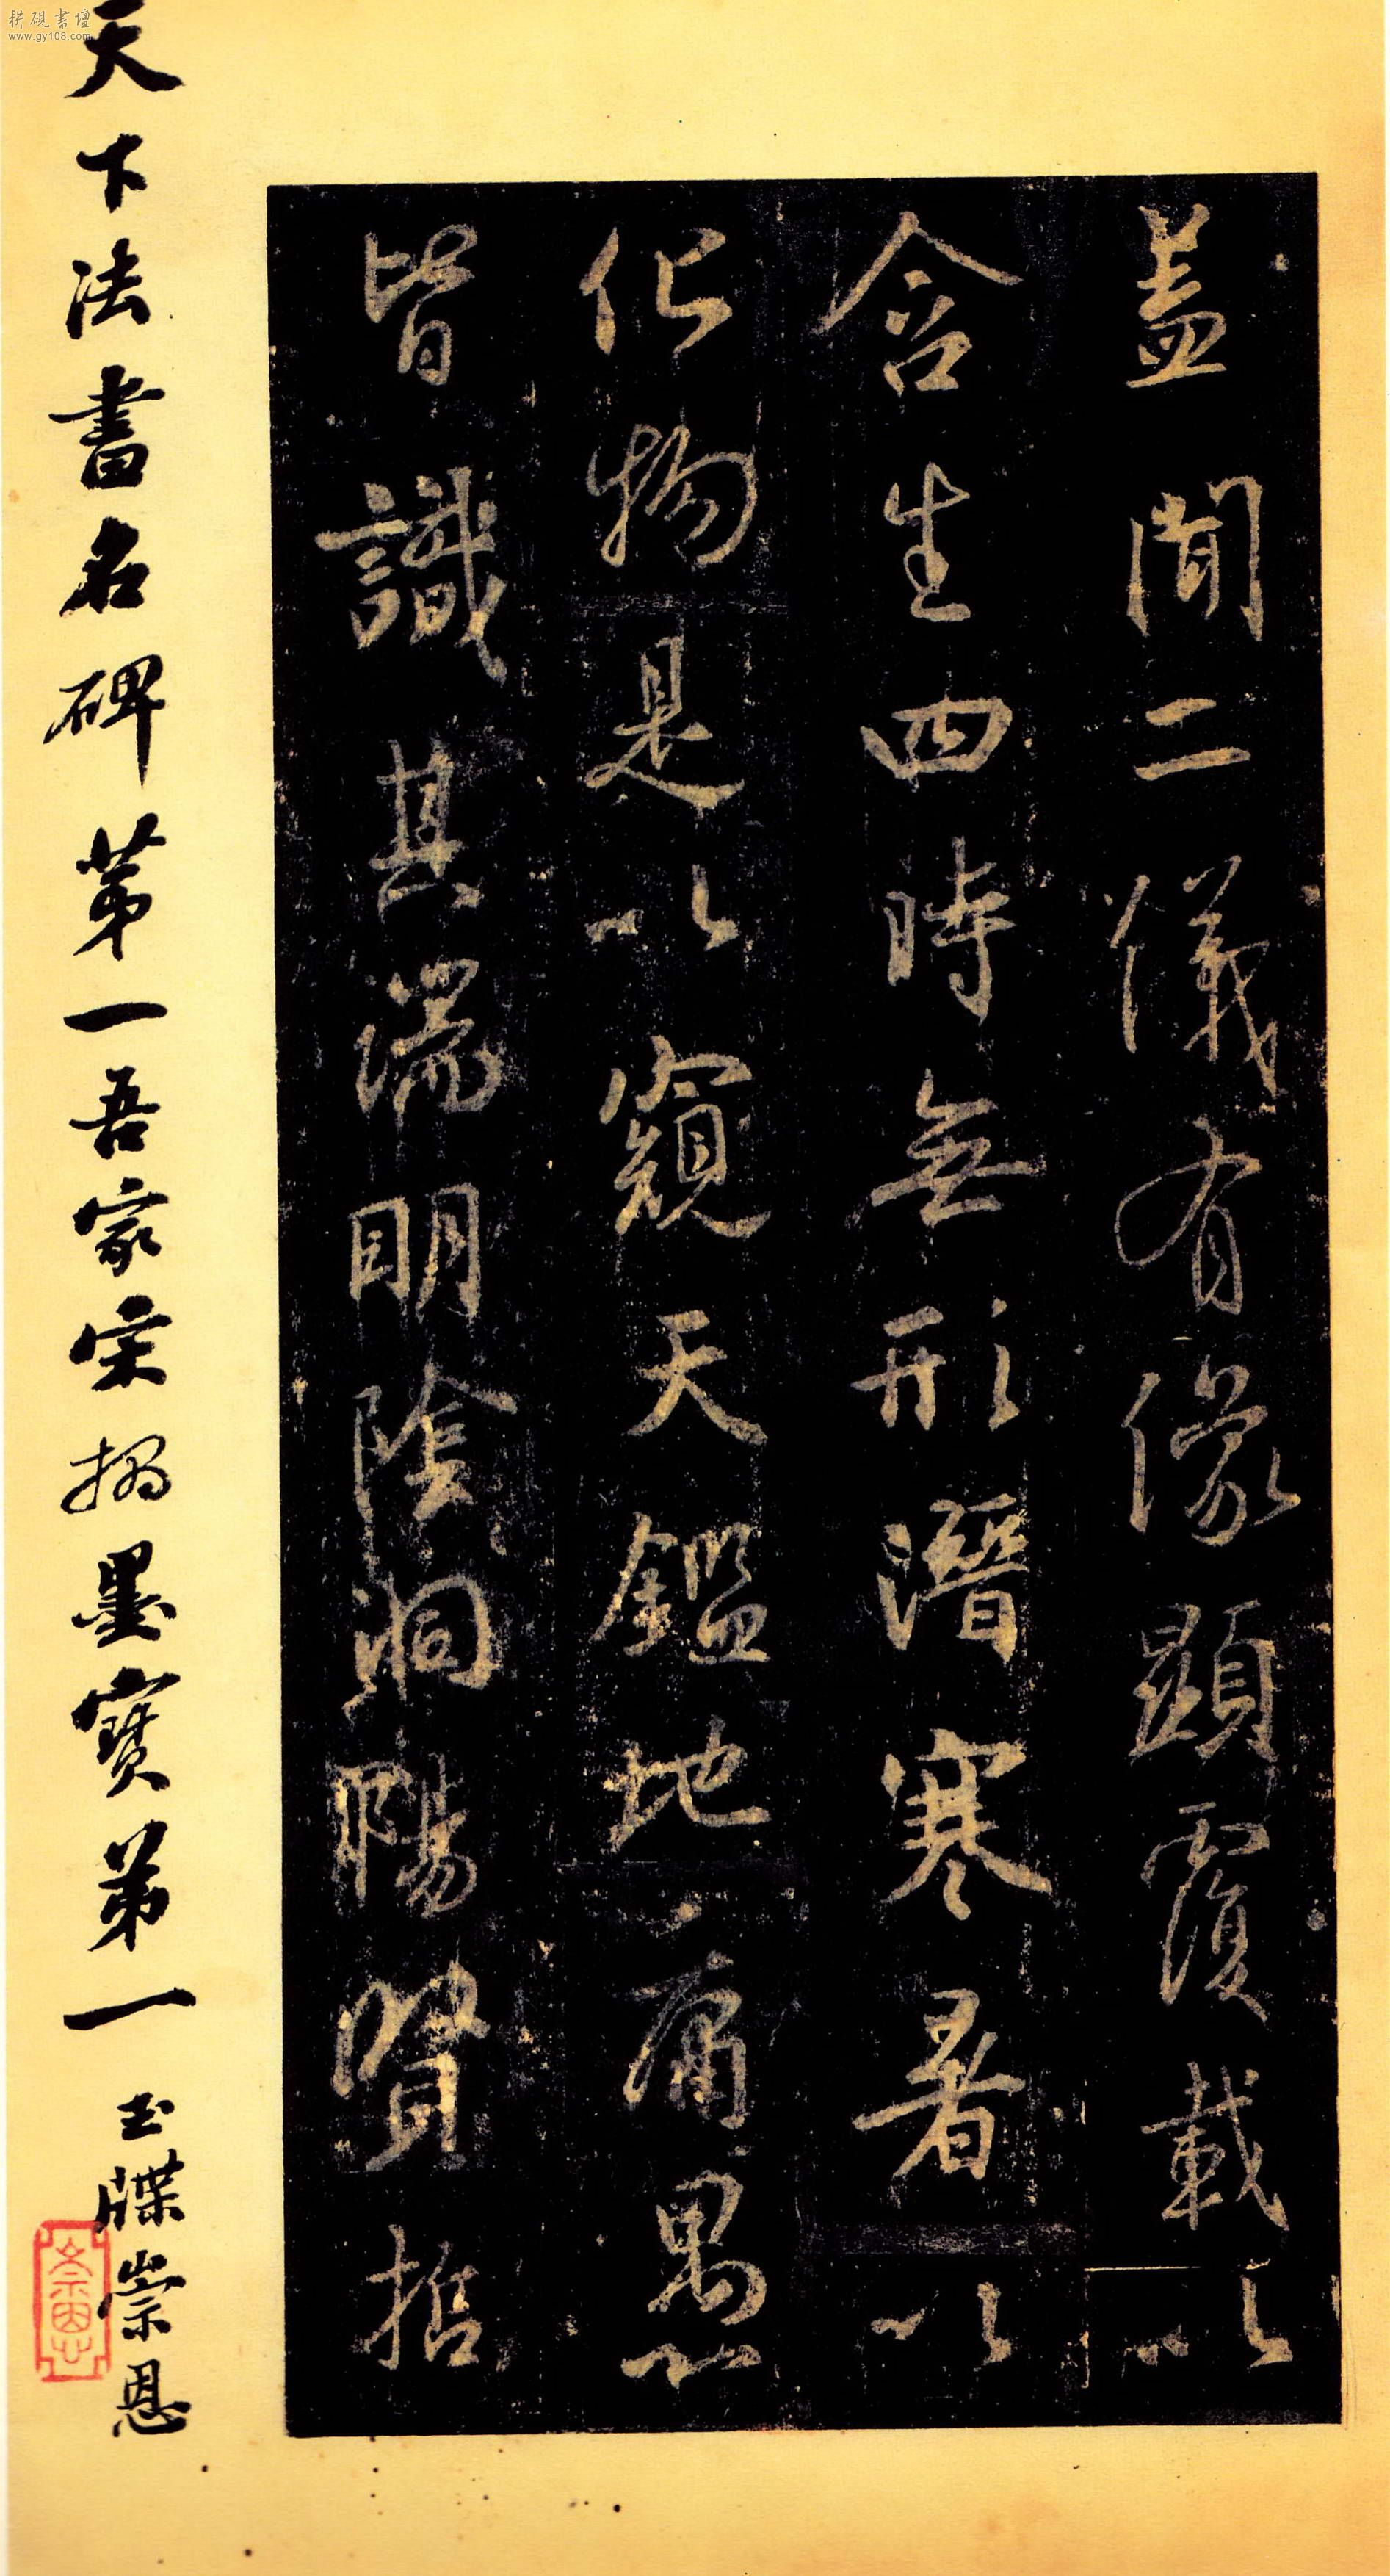 蓋聞二儀有像顯覆載以
含生四時無形潛寒暑以
化物是以窺天鑑地庸愚
皆識其端明陰洞陽賢哲
天下法書名碑第一吾家宋搨墨寶第一
玉牒崇恩
崇恩
耕硯書壇
www.gy108.com